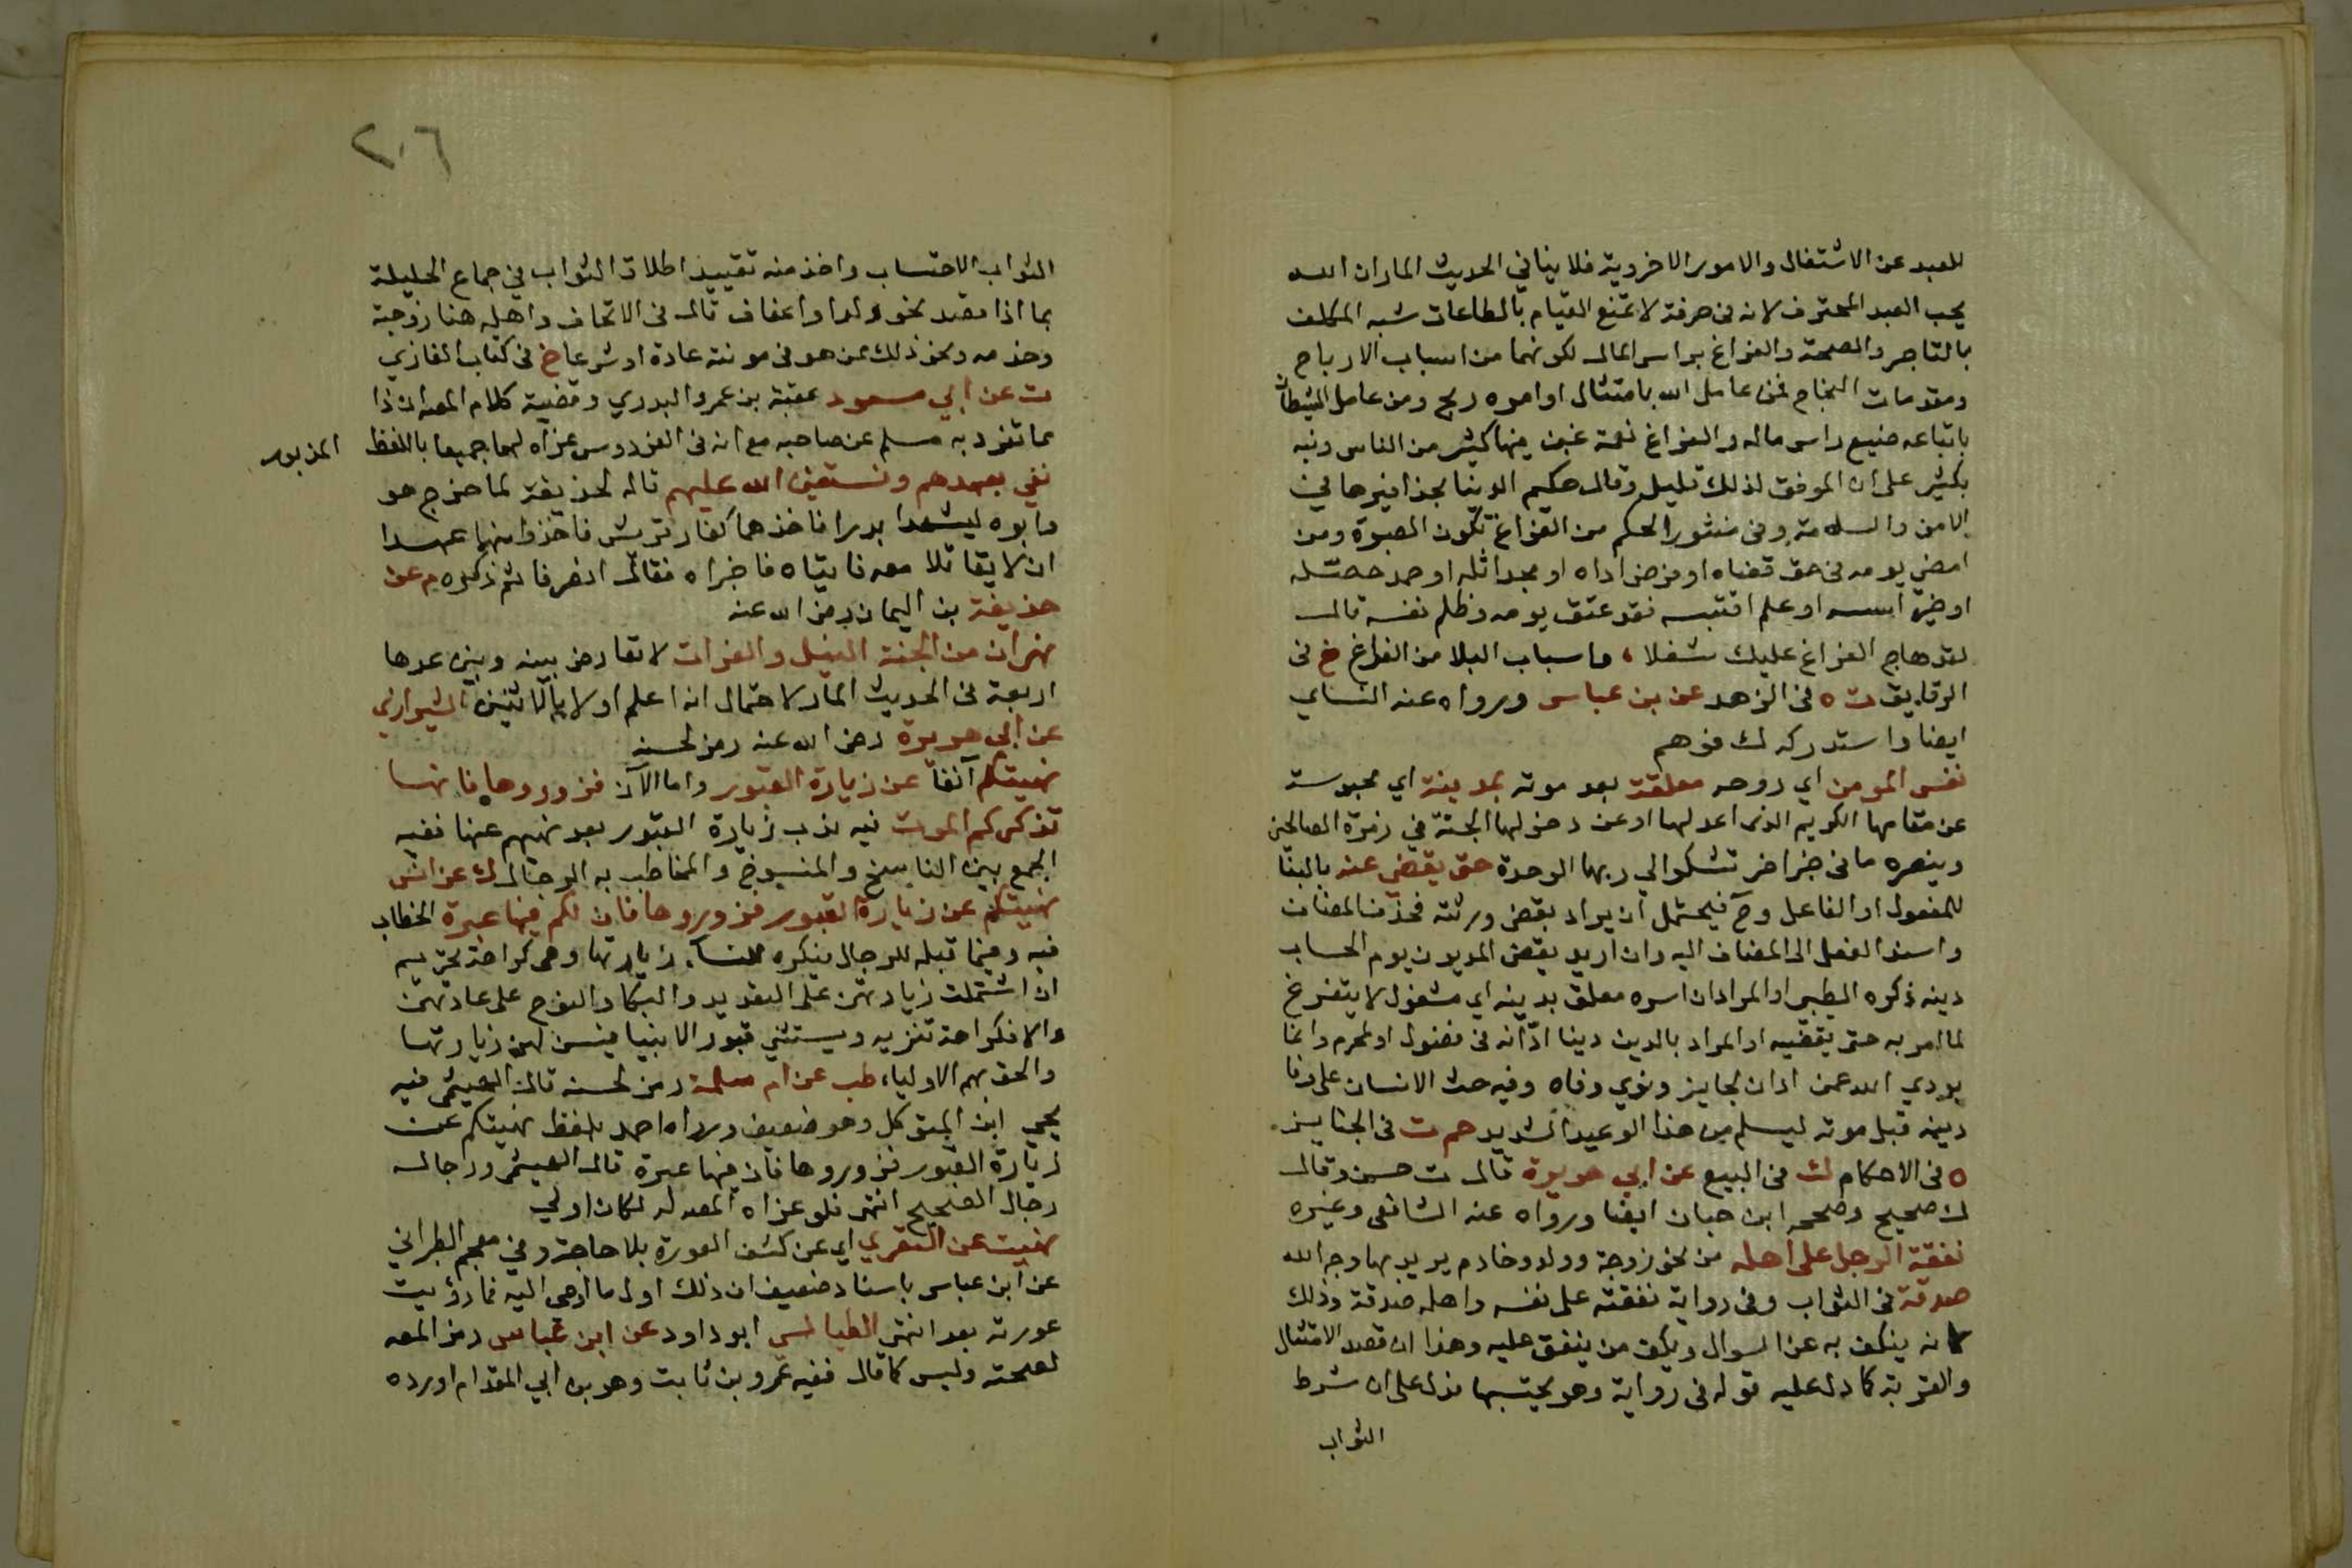 للعبد عن الاشتغال والامور الاخروية فلا ينافي الحديث المار ان الله
يحب العبد المحترف لانه في حرفة لا تمنع القيام بالطاعات شبه المكلف
بالتاجر والصحة والفراغ براس المال لكونهما من اسباب الارباح
ومقدمات النجاح فمن عامل الله بامتثال اوامره ربح ومن عامل الشيطان
باتباعه ضيع راس ماله والفراغ نعمة غبن فيها كثير من الناس ونبه
بكثير على ان الموفق لذلك قليل وقال حكيم الدنيا بحذافيرها في
الامن والسلامة وفي منثور الحكم من الفراغ تكون الصبوة ومن
امضى يومه في حق قضاه او فرض اداه او مجد اثله او حمد حصله
او خير اسسه او علم اقتبسه فقد عتق يومه وظلم نفسه قال
لقد هاج الفراغ عليك شغلا، واسباب البلا من الفراغ خ في
الرقايق ت ه في الزهد عن بن عباس ورواه عنه النساي
ايضا واستدركه ك فوهم
نفس المومن اي روحه معلقة بعد موته بدينه اي محبوسة
عن مقامها الكريم الذي اعد لها او عن دخولها الجنة في زمرة الصالحين
وينصره ما في خبر اخر تشكوا الي ربها الوحدة حتى يقضى عنه بالبنا
للمفعول او الفاعل وح فيحتمل ان يراد يقضي ورثته فحذف المضاف
واسند الفعل الى المضاف اليه وان اريد يقضي المديون يوم الحساب
دينه ذكره الطيبي او المراد ان اسره معلق بدينه اي مشغول لا يتفرغ
لما امر به حتى يقضيه او المراد بالدين دينا ادانه في فضول او لمحرم وانما
يودي الله عمن ادان لجايز ونوي وفاه وفيه حث الانسان على وفا
دينه قبل موته ليسلم من هذا الوعيد الشديد حم ت في الجنايز
ه في الاحكام ك في البيع عن ابي هريرة قال ت حسن وقال
ك صحيح وصححه ابن حبان ايضا ورواه عنه الشافعي وغيره
نفقة الرجل على اهله من نحو زوجة وولد وخادم يريد بها وجه الله
صدقة في الثواب وفي رواية نفقته على نفسه واهله صدقة وذلك
لانه ينكف به عن السوال ويكف من ينفق عليه وهذا ان قصد الامتثال
والقربة كما دل عليه قوله في رواية وهو يحتسبها فدل على ان شرط
الثواب
٢٠٦
الثواب الاحتساب واخذ منه تقييد اطلاق الثواب في جماع الحليلة
بما اذا قصد نحو ولد او اعفاف قال في الاتحاف واهله هنا زوجته
وخدمه ونحو ذلك ممن هو في مونته عادة او شرعا خ في كتاب المغازي
ت عن ابي مسعود عقبة بن عمرو البدري وقضية كلام المصنف ان ذا
مما تفرد به مسلم عن صاحبه مع انه في الفردوس عزاه لهما جميعا باللفظ المزبور
نفي بعهدهم ونستعين الله عليهم قاله لحذيفة لما خرج هو
وابوه ليشهدا بدرا فاخذهما كفار قريش فاخذوا منهما عهدا
ان لا يقاتلا معه فاتياه فاخبراه فقال انصرفا ثم ذكره م عن
حذيفة بن اليمان رضي الله عنه
نهران من الجنة النيل والفرات لا تعارض بينه وبين عدها
اربعة في الحديث المار لاحتمال انه اعلم اولا بالاثنين الشيرازي
عن ابي هريرة رضي الله عنه رمز لحسنه
نهيتكم آنفا عن زيارة القبور واما الآن فزوروها فانها
تذكركم الموت فيه ندب زيارة القبور بعد نهيهم عنها ففيه
الجمع بين الناسخ والمنسوخ والمخاطب به الرجال ك عن انس
نهيتكم عن زيارة القبور فزوروها فان لكم فيها عبرة الخطاب
فيه وفيما قبله للرجال فيكره للنساء زيارتها وهي كراهة تحريم
ان اشتملت زيارتهن على التعديد والبكا والنوح على عادتهن
والا فكراهة تنزيه ويستثني قبور الانبيا فيسن لهن زيارتها
والحق بهم الاولياء طب عن ام سلمة رمز لحسنه قال الهيثمي فيه
يحيى ابن المتوكل وهو ضعيف ورواه احمد بلفظ نهيتكم عن
زيارة القبور فزوروها فان فيها عبرة قال الهيثمي ورجاله
رجال الصحيح انتهى فلو عزاه المصه له لكان اولي
نهيت عن التعري اي عن كشف العورة بلا حاجة وفي معجم الطبراني
عن ابن عباس باسناد ضعيف ان ذلك اول ما اوحى اليه فما رؤيت
عورته بعد انتهى الطيالسي ابو داود عن ابن عباس رمز المصه
لصحته وليس كما قال ففيه عمرو بن ثابت وهو بن ابي المقدام اورده